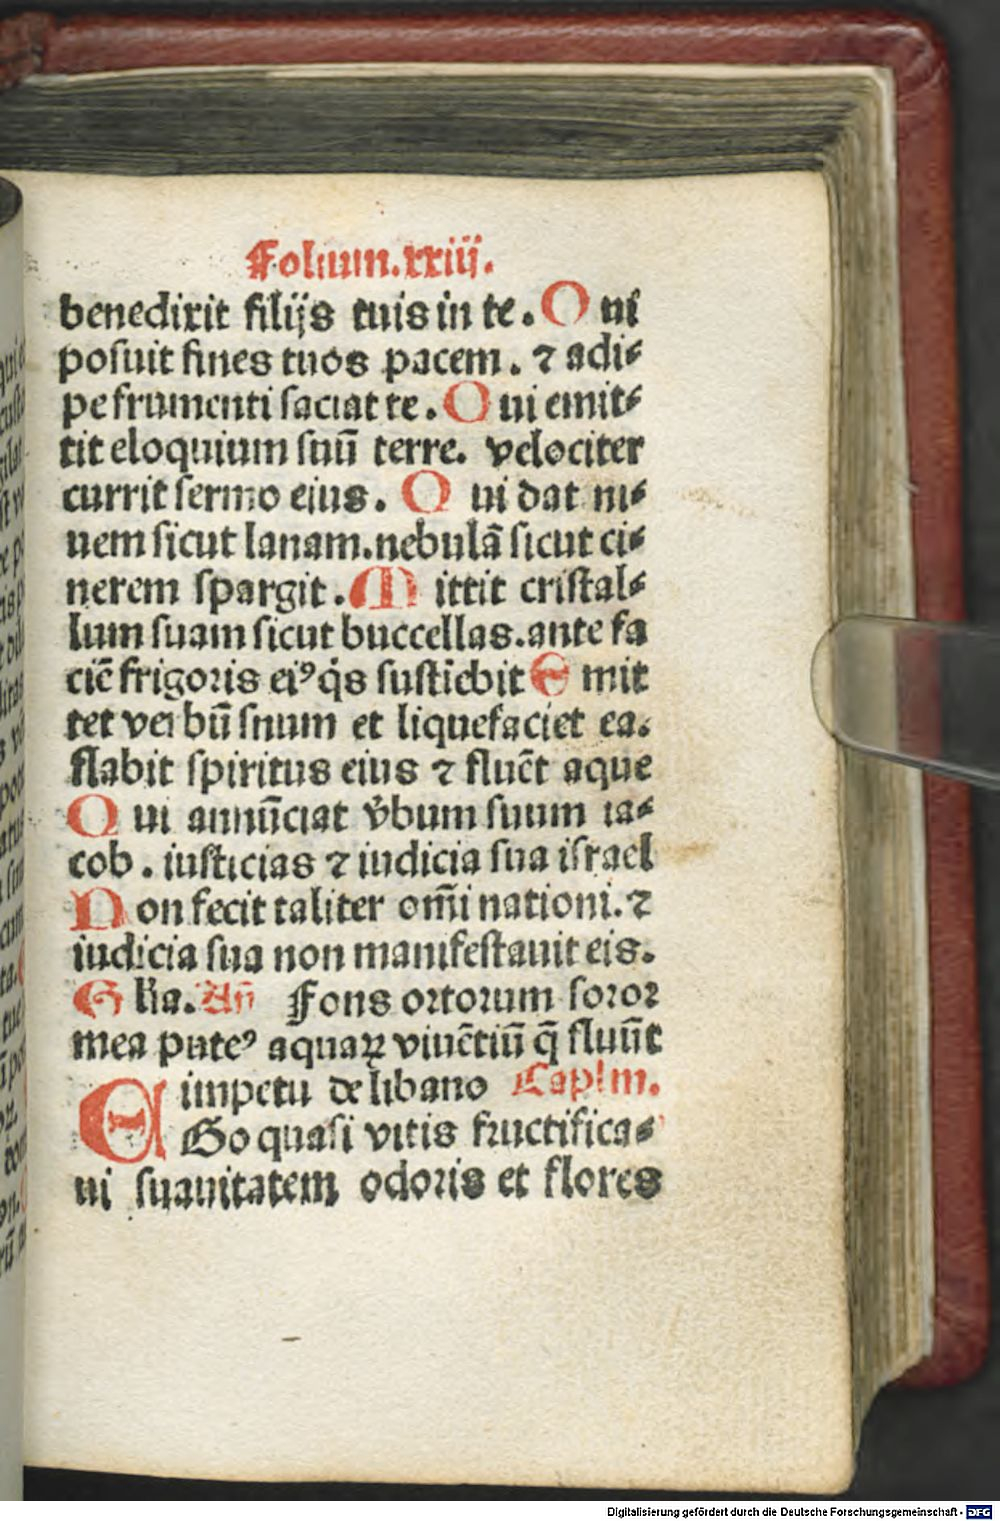 Folium.xxiij.
benedixit filijs tuis in te. Qui
posuit fines tuos pacem. ⁊ adi⸗
pe frumenti saciat te. Qui emit⸗
tit eloquium suũ terre. velociter
currit sermo eius. Qui dat ni⸗
uem sicut lanam. nebulã sicut ci⸗
nerem spargit. Mittit cristal⸗
lum suam sicut buccellas. ante fa
ciẽ frigoris eiꝰ q̇s sustiẽbit Emit
tet verbũ suum et liquefaciet ea.
flabit spiritus eius ⁊ fluẽt aque
Qui annũciat v̾bum suum ia⸗
cob. iusticias ⁊ iudicia sua israel
Non fecit taliter om̃i nationi. ⁊
iudicia sua non manifestauit eis.
Glia. Añ Fons ortorum soror
mea puteꝰ aquaꝝ viuẽtiũ q̃ fluũt
impetu de libano Capl'm.
EGo quasi vitis fructifica⸗
ui suauitatem odoris et flores
Digitalisierung gefördert durch die Deutsche Forschungsgemeinschaft - DFG